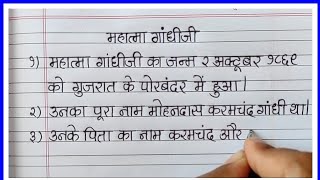 महात्मा गांधीजी
१) महात्मा गांधीजी का जन्म २ अक्टूबर १८६९
को गुजरात के पोरबंदर में हुआ।
२) उनका पूरा नाम मोहनदास करमचंद गांधी था।
३) उनके पिता का नाम करमचंद और